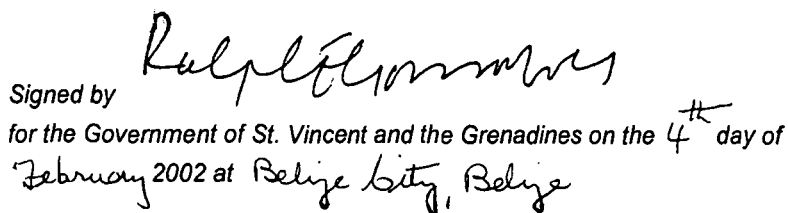 Ralph E Gonsalves
Signed by
for the Government of St. Vincent and the Grenadines on the 4th day of
February 2002 at Belize City, Belize